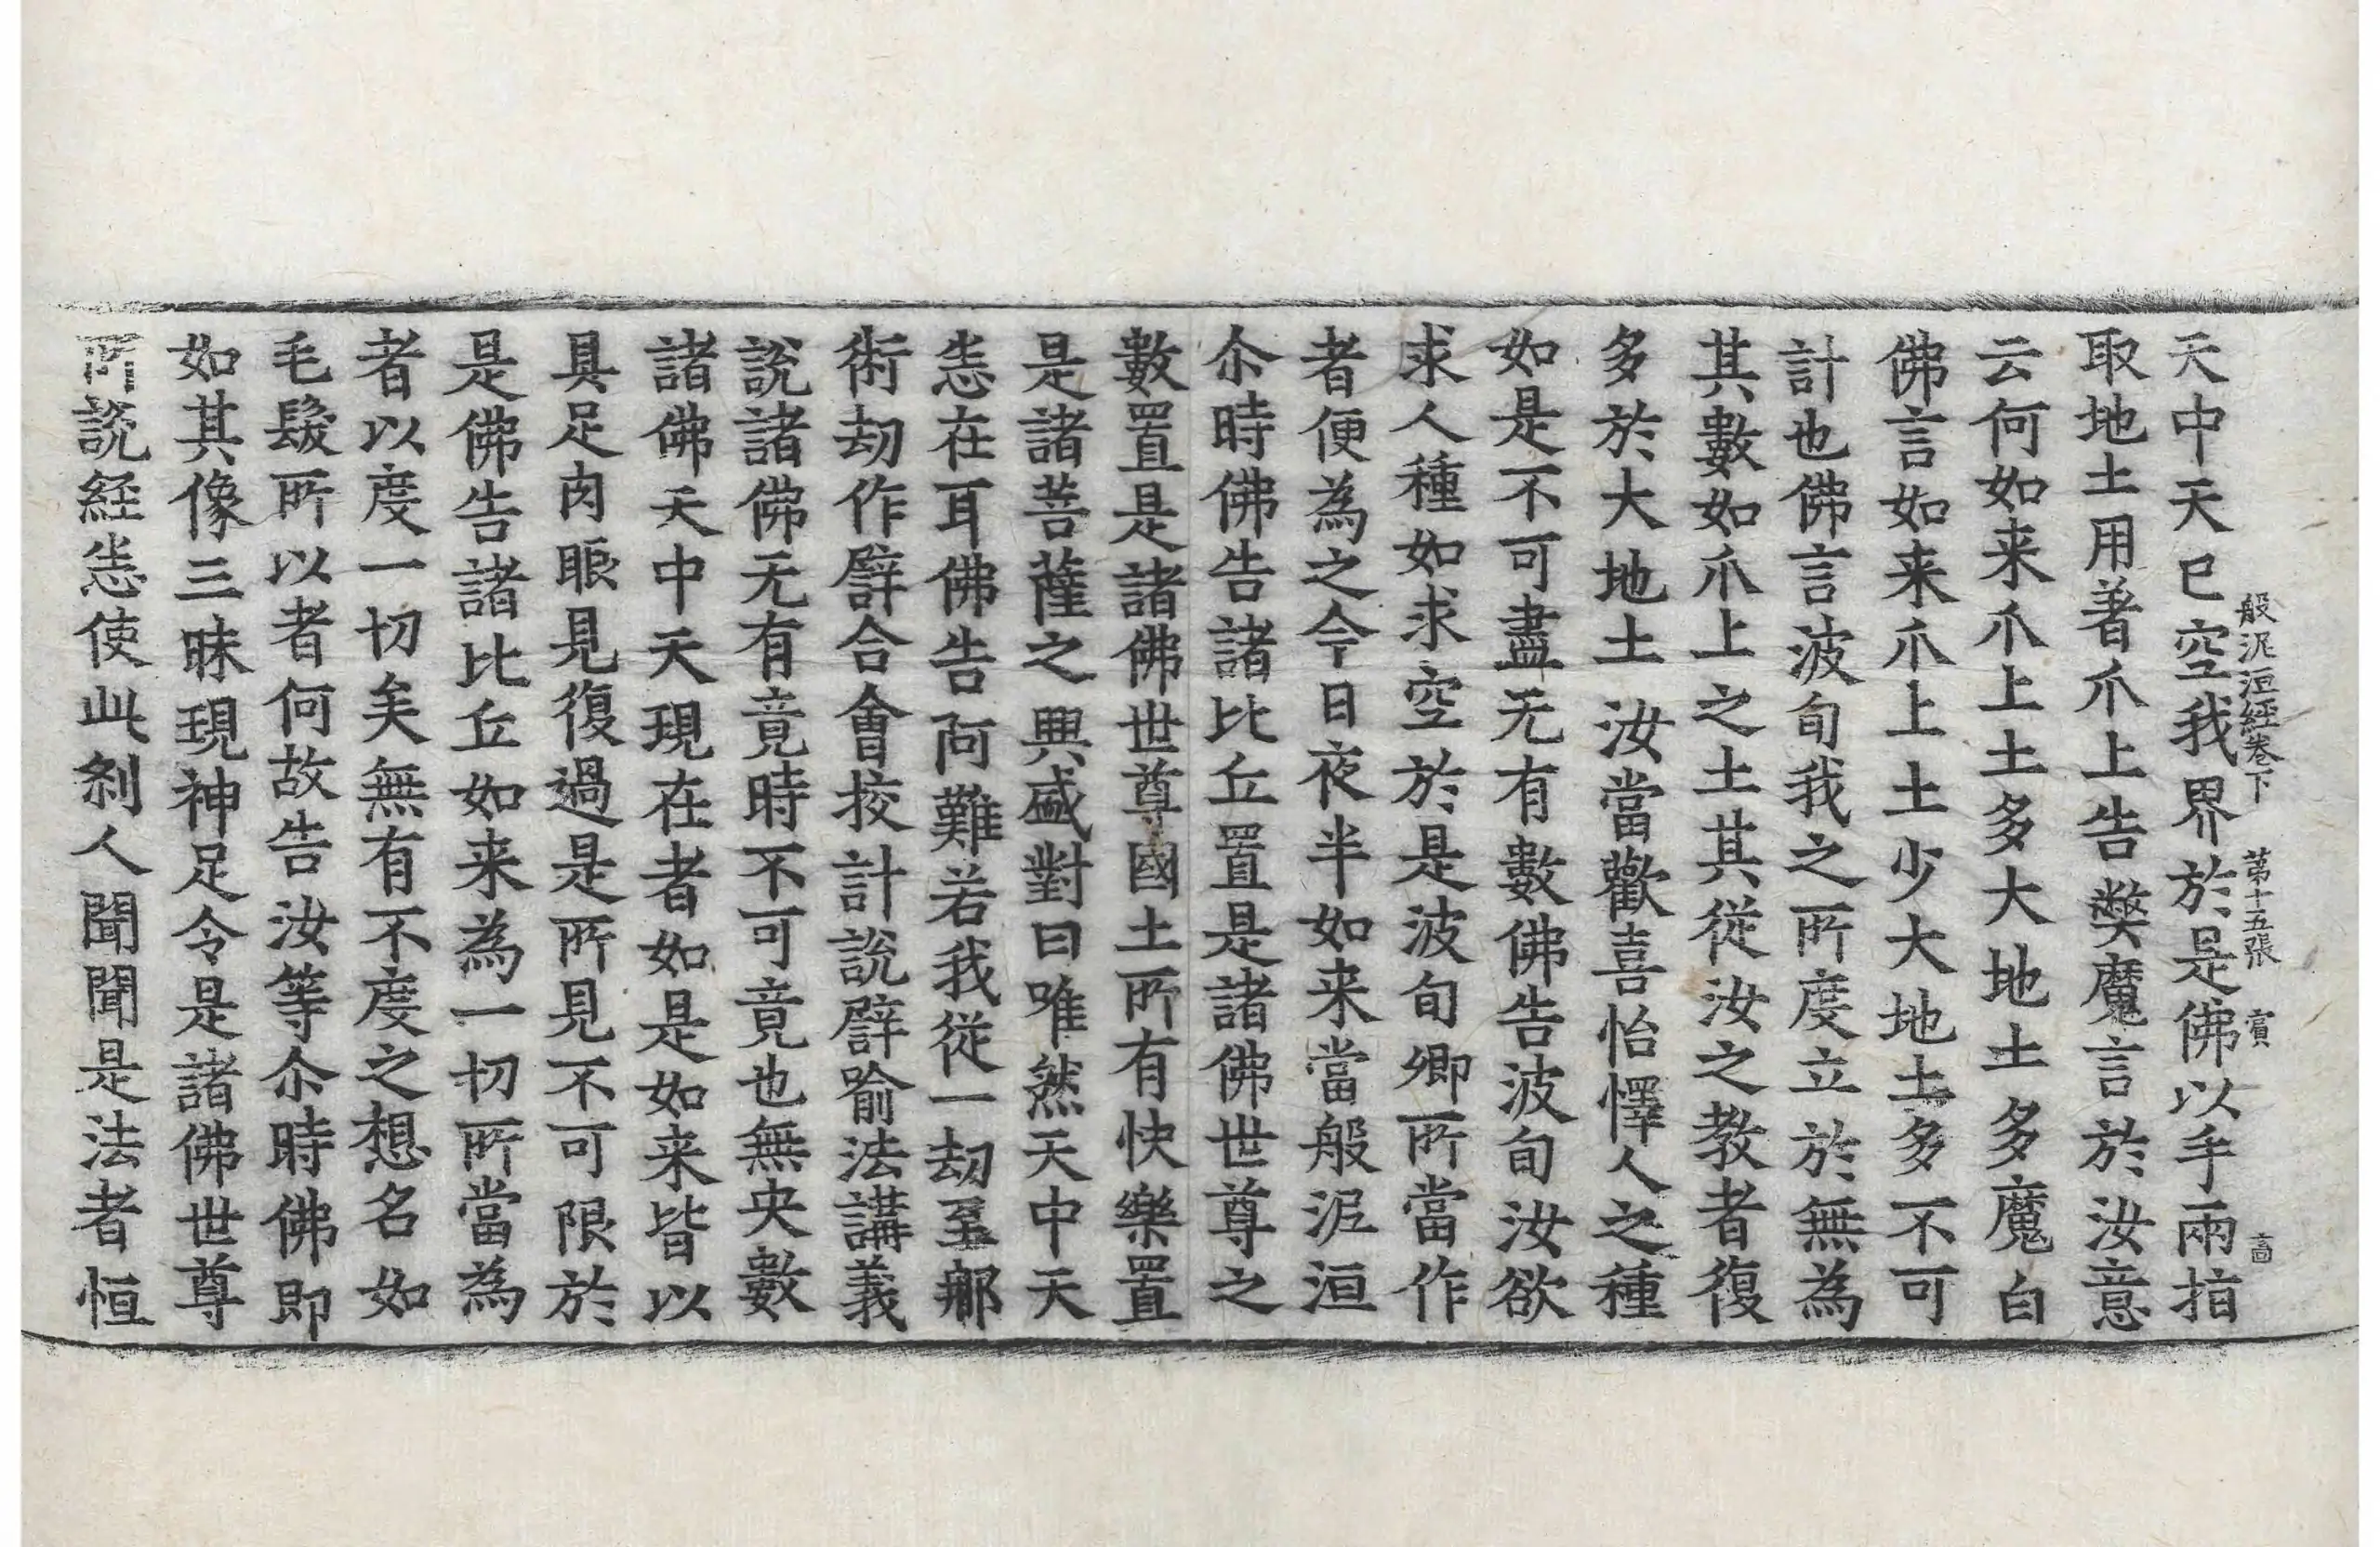 般泥洹經卷下　第十五張　賓
天中天已空我界於是佛以手兩指
取地土用著爪上告獘魔言於汝意
云何如来爪上土多大地土多魔白
佛言如来爪上土少大地土多不可
計也佛言波旬我之所度立於無為
其數如爪上之土其從汝之教者復
多於大地土汝當歡喜怡懌人之種
如是不可盡无有數佛告波旬汝欲
求人種如求空於是波旬卿所當作
者便為之今日夜半如来當般泥洹
尒時佛告諸比丘置是諸佛世尊之
數置是諸佛世尊國土所有快樂置
是諸菩薩之興盛對曰唯然天中天
恙在耳佛告阿難若我從一劫至那
術劫作譬合會挍計說譬喻法講義
說諸佛无有竟時不可竟也無央數
諸佛天中天現在者如是如来皆以
具足肉眼見復過是所見不可限於
是佛告諸比丘如来為一切所當為
者以度一切矣無有不度之想名如
毛髮所以者何故告汝等尒時佛即
如其像三昧現神足令是諸佛世尊
所說経恙使此剎人聞聞是法者恒